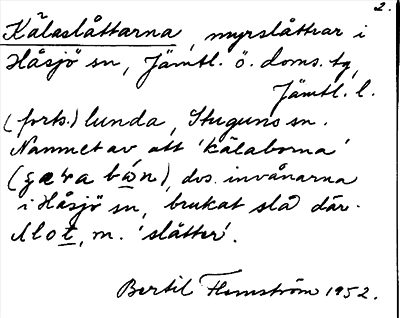 2.
Kälaslåttarna, myrslåttrar i
Håsjö sn, Jämtl. ö. doms. tg,
Jämtl. l.
(forts.) lunda, Stuguns sn.
Namnet av att 'kälaborna'
dvs. invånarna
i Håsjö sn, brukat slå där.
slot, m. 'slåtter'.
Bertil Flemström 1952.